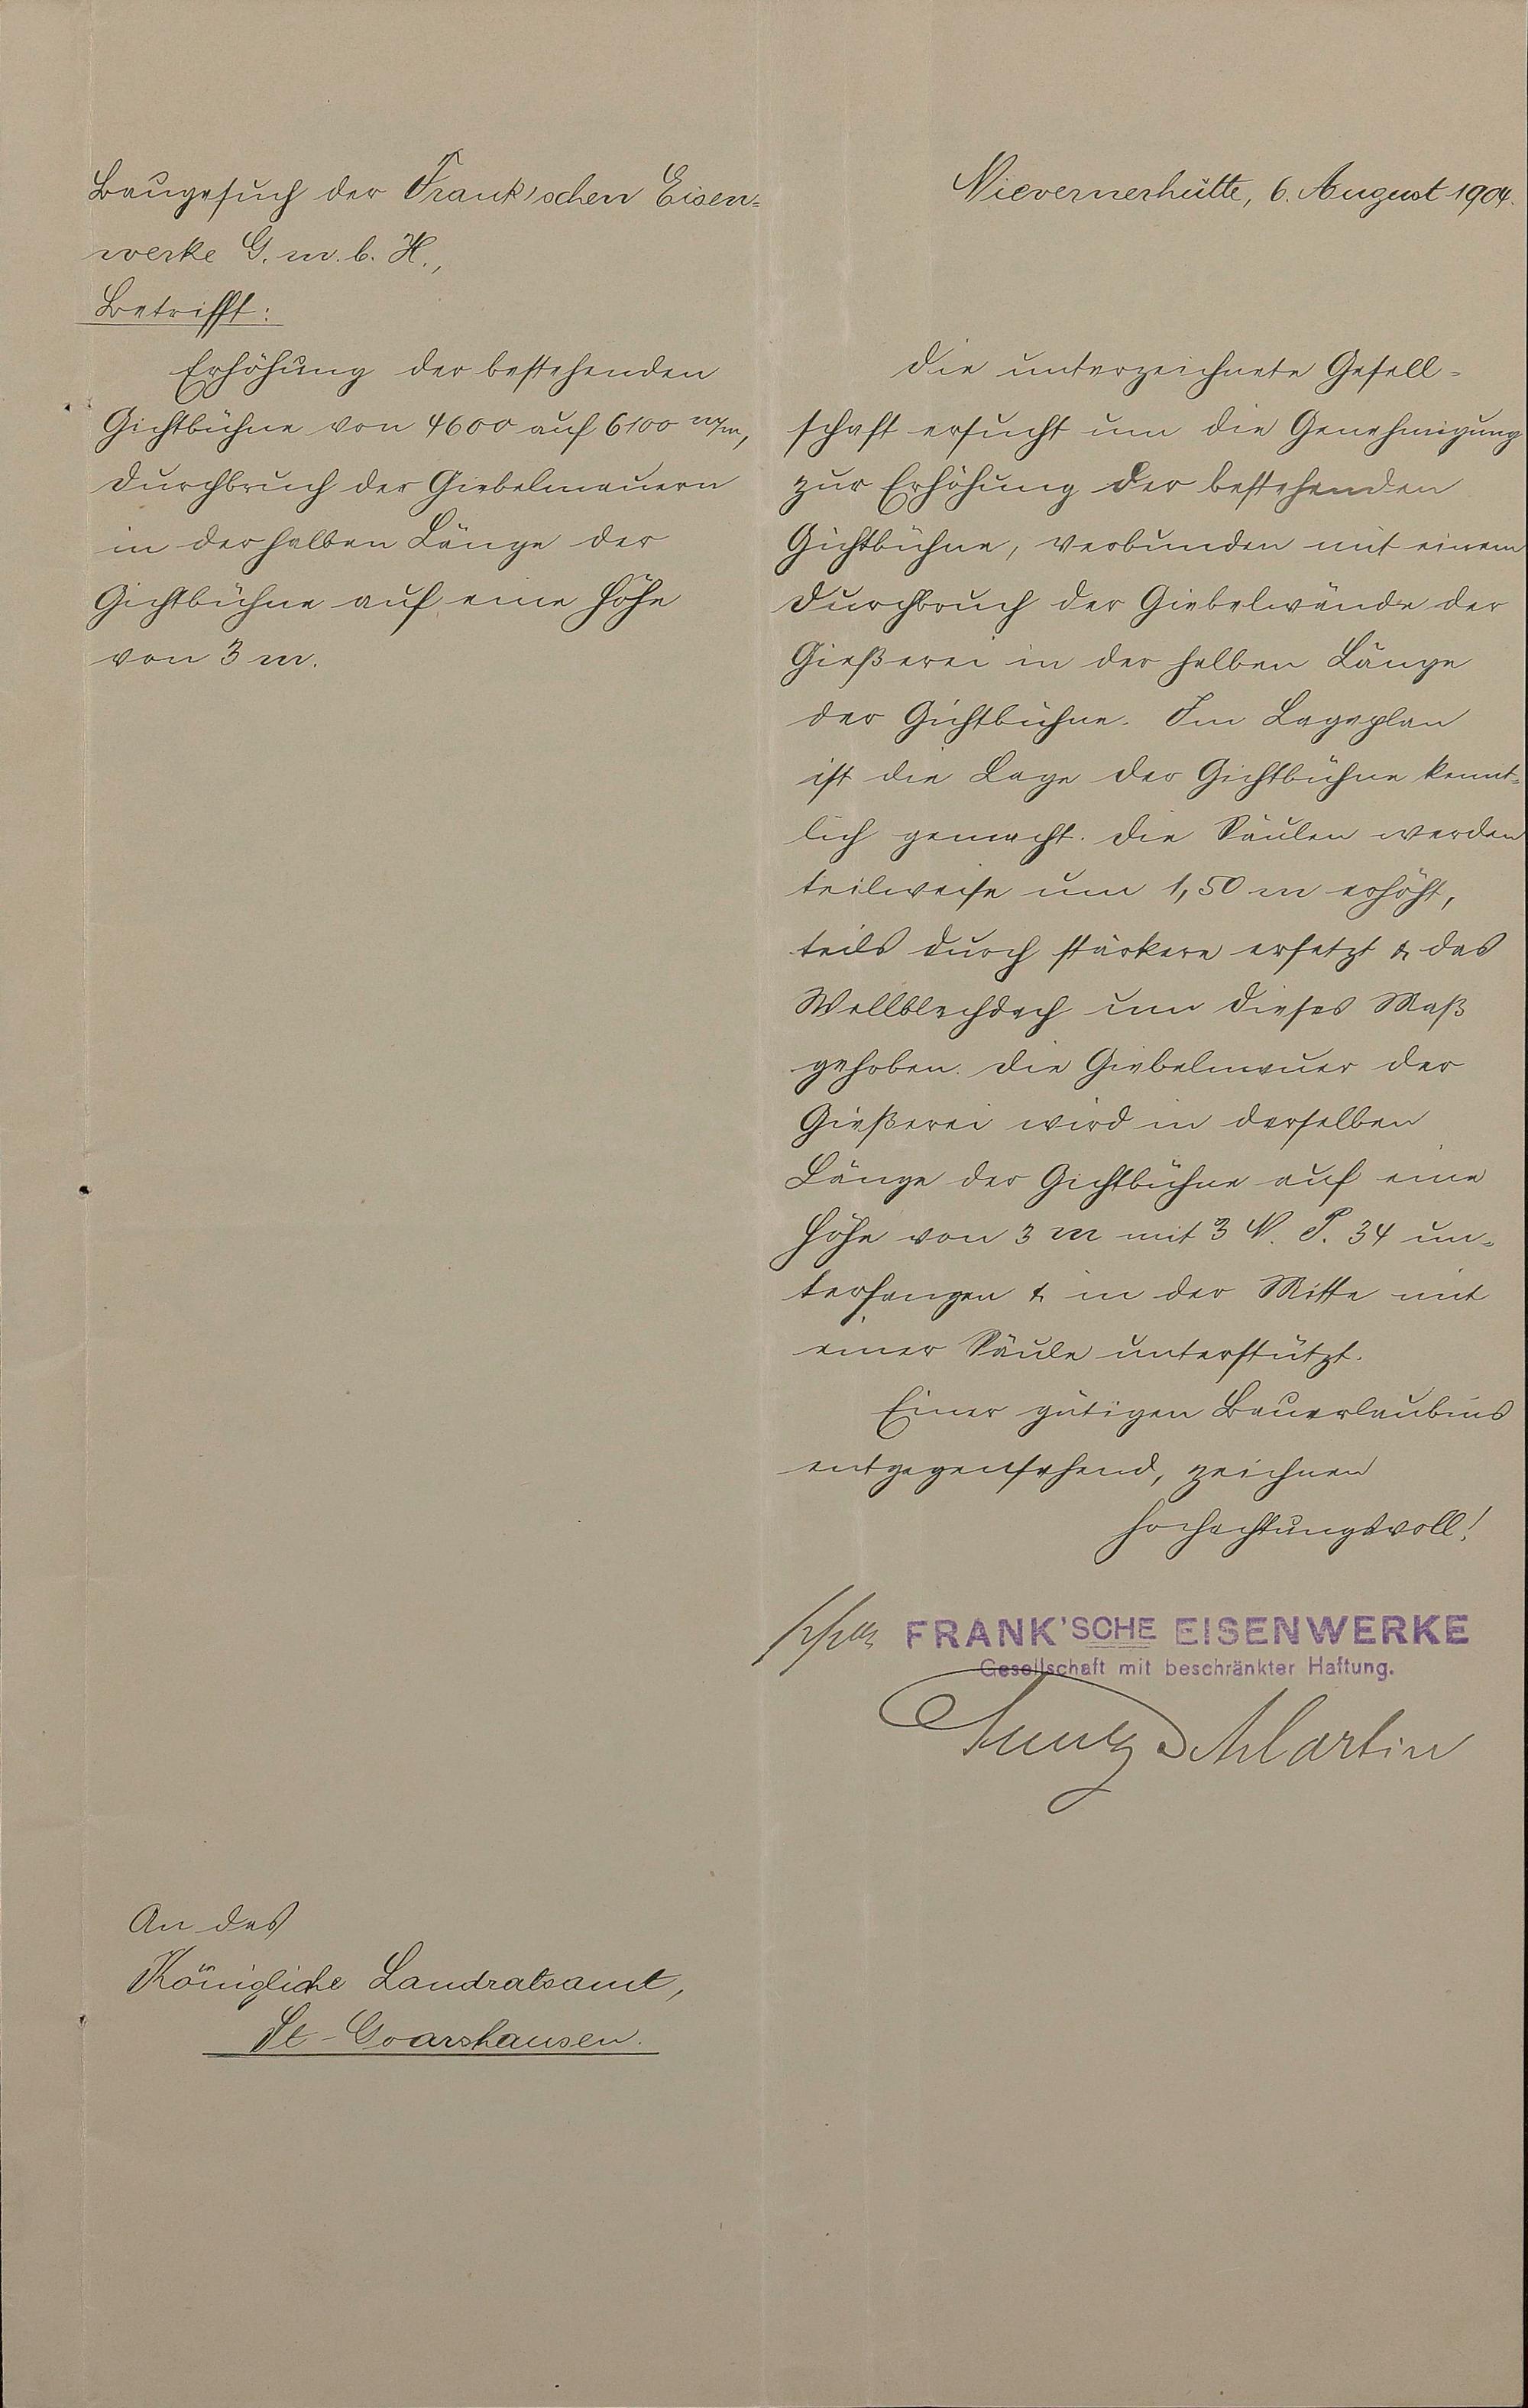 Baugesuch der Frank'schen Eisen=
werke G. m. b. H.,
Betrifft:
Erhöhung der bestehenden
Gichtbühne von 4600 auf 6100 m/m,
Durchbruch der Giebelmauern
in der halben Länge der
Gichtbühne auf eine Höhe
von 3 m.
An das
Königliche Landratsamt,
St-Goarshausen.
Nievernerhütte, 6. August 1904.
Die unterzeichnete Gesell=
schaft ersucht um die Genehmigung
zur Erhöhung der bestehenden
Gichtbühne, verbunden mit einem
Durchbruch der Giebelwände der
Gießerei in der halben Länge
der Gichtbühne. Im Lageplan
ist die Lage der Gichtbühne kennt=
lich gemacht. Die Säulen werden
teilweise um 1,50 m erhöht,
teils durch stärkere ersetzt & das
Wellblechdach um dieses Maß
gehoben. Die Giebelmauer der
Gießerei wird in derselben
Länge der Gichtbühne auf eine
Höhe von 3 m mit 3 N. P. 34 un=
terfangen & in der Mitte mit
einer Säule unterstützt.
Einer gütigen Bauerlaubnis
entgegensehend, zeichnen
Hochachtungsvoll!
ppa FRANK'SCHE EISENWERKE
Gesellschaft mit beschränkter Haftung.
Martin